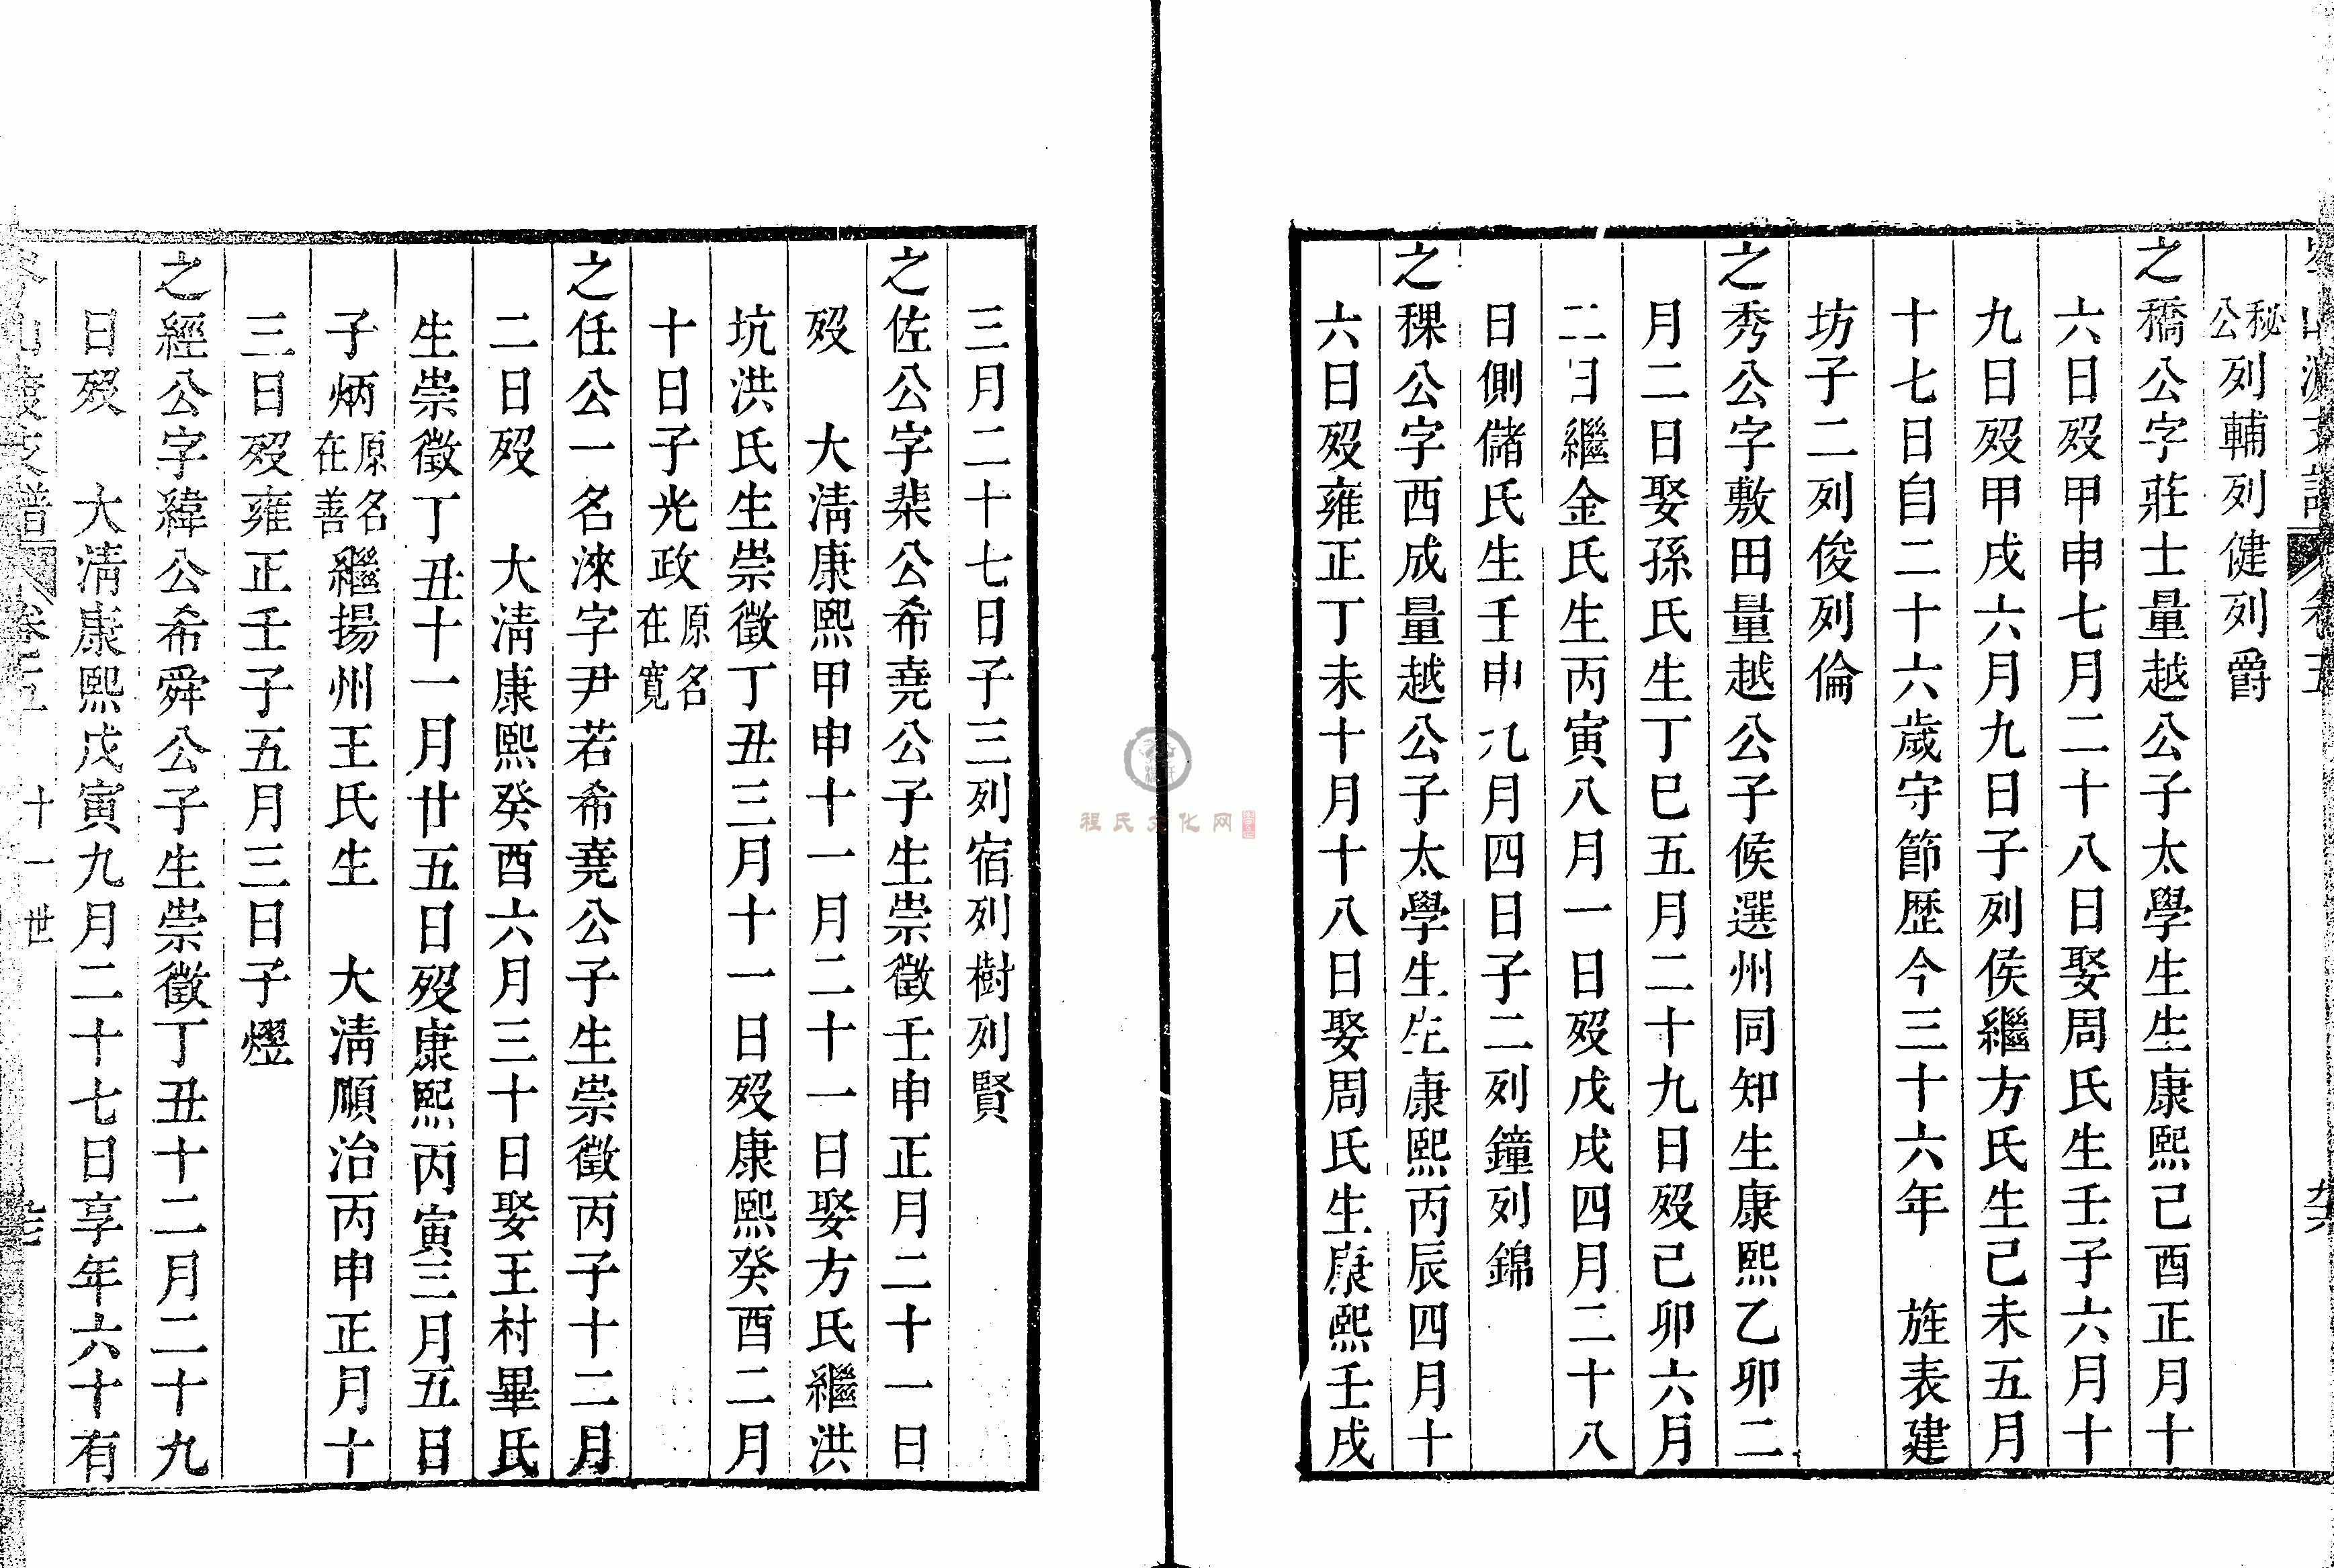 卷五
秘公列輔列健列爵
之穚公字莊士量越公子太學生生康熙己酉正月十
六日歿甲申七月二十八日娶周氏生壬子六月十
九日歿甲戌六月九日子列侯繼方氏生己未五月
十七日自二十六歲守節歷今三十六年 旌表建
坊子二列俊列倫
之秀公字敷田量越公子候選州同知生康熙乙卯二
月二日娶孫氏生丁巳五月二十九日歿己卯六月
二日繼金氏生丙寅八月一日歿戊戌四月二十八
日側儲氏生壬申九月四日子二列鐘列錦
之稞公字西成量越公子太學生生康熙丙辰四月十
六日歿雍正丁未十月十八日娶周氏生康熙壬戌
三月二十七日子三列宿列樹列賢
之佐公字棐公希堯公子生崇徵壬申正月二十一日
歿 大淸康熙甲申十一月二十一日娶方氏繼洪
坑洪氏生崇徵丁丑三月十一日歿康熙癸酉二月
十日子光政原名在寬
之任公一名淶字尹若希堯公子生崇徵丙子十二月
二日歿 大淸康熙癸酉六月三十日娶王村畢氏
生崇徵丁丑十一月廿五日歿康熙丙寅三月五日
子炳原名在善繼揚州王氏生 大淸順治丙申正月十
三日歿雍正壬子五月三日子熤
之經公字緯公希舜公子生崇徵丁丑十二月二十九
日歿 大淸康熙戊寅九月二十七日享年六十有
山渡支譜 卷五 十一世
程氏文化网